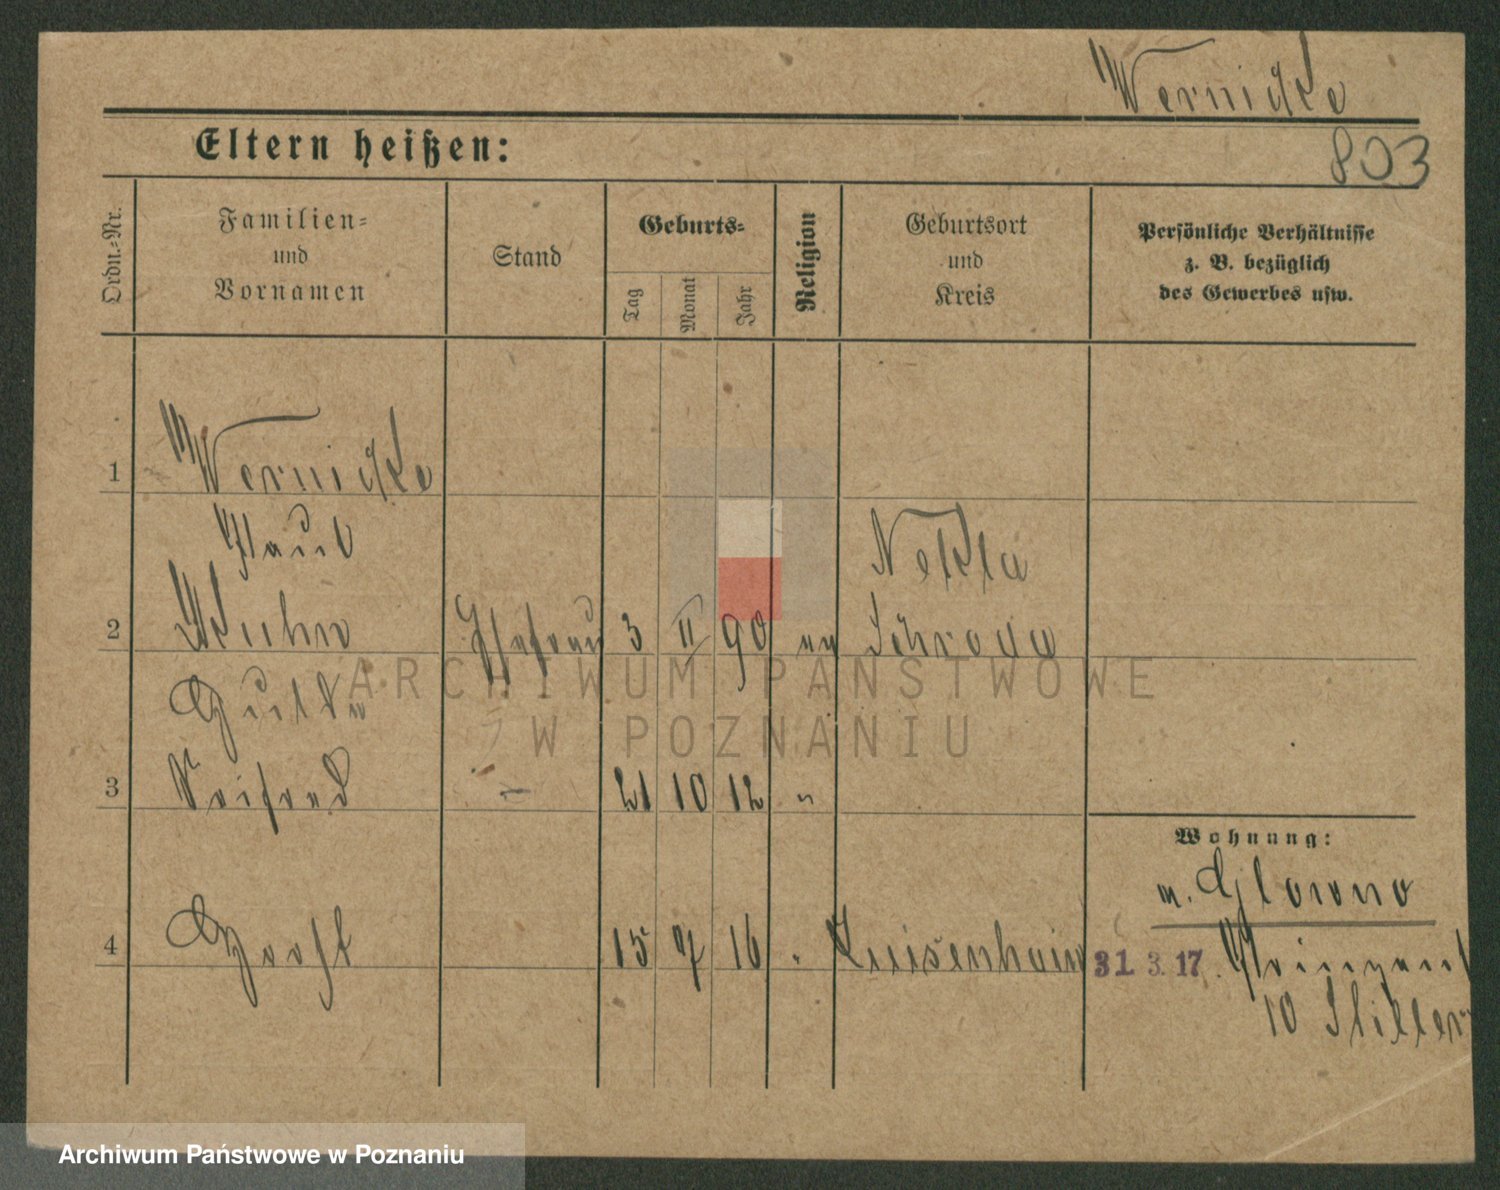 Wernicke
803
Eltern heißen:
Ordn.=Nr.
Familien=
und
Vornamen
Stand
Geburts=
Tag
Monat
Jahr
Religion
Geburtsort
und
Kreis
Persönliche Verhältnisse
z. B. bezüglich
des Gewerbes usw.
1 Wernicke
Paul Nekla
2 Kuhn Ehefrau 3 II 90 ev Schroda
Hulda
3 21 10 12 "
Wohnung:
n. Glowno
4 Horst 15 7 16 " Luisenhain 31. 3. 17.
10 Stiller
ARCHIWUM PAŃSTWOWE
W POZNANIU
Archiwum Państwowe w Poznaniu